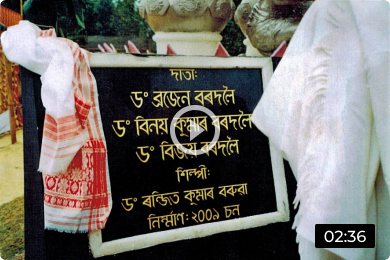 দাতা:
ড° ব্ৰজেন বৰদলৈ
ড° বিনয় কুমাৰ বৰদলৈ
ড° বিজয় বৰদলৈ
শিল্পী:
ড° ৰন্জিত কুমাৰ বৰুৱা
নিৰ্ম্মাণ: ২০০৯ চন
02:36